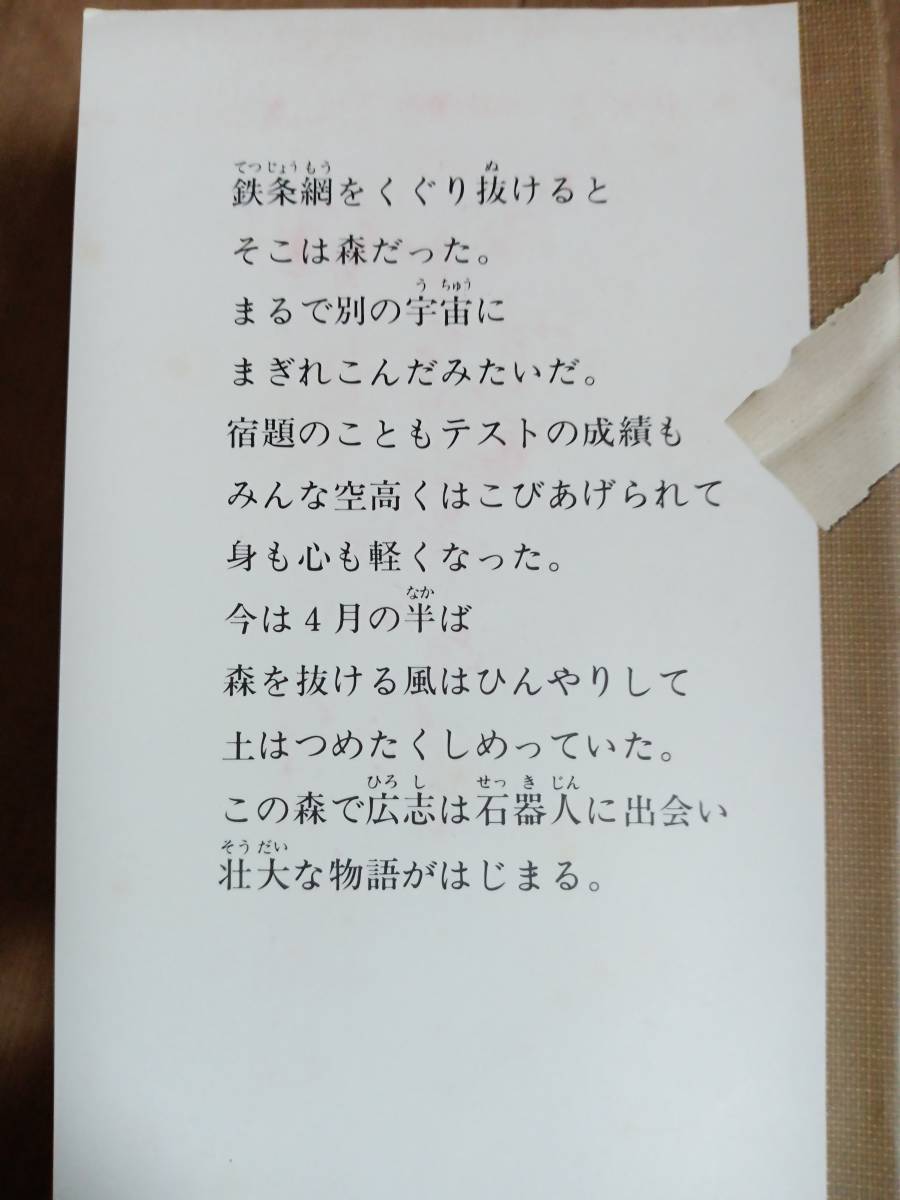 鉄条網をくぐり抜けると
そこは森だった。
まるで別の宇宙に
まぎれこんだみたいだ。
宿題のこともテストの成績も
みんな空高くはこびあげられて
身も心も軽くなった。
今は4月の半ば
森を抜ける風はひんやりして
土はつめたくしめっていた。
この森で広志は石器人に出会い
壮大な物語がはじまる。